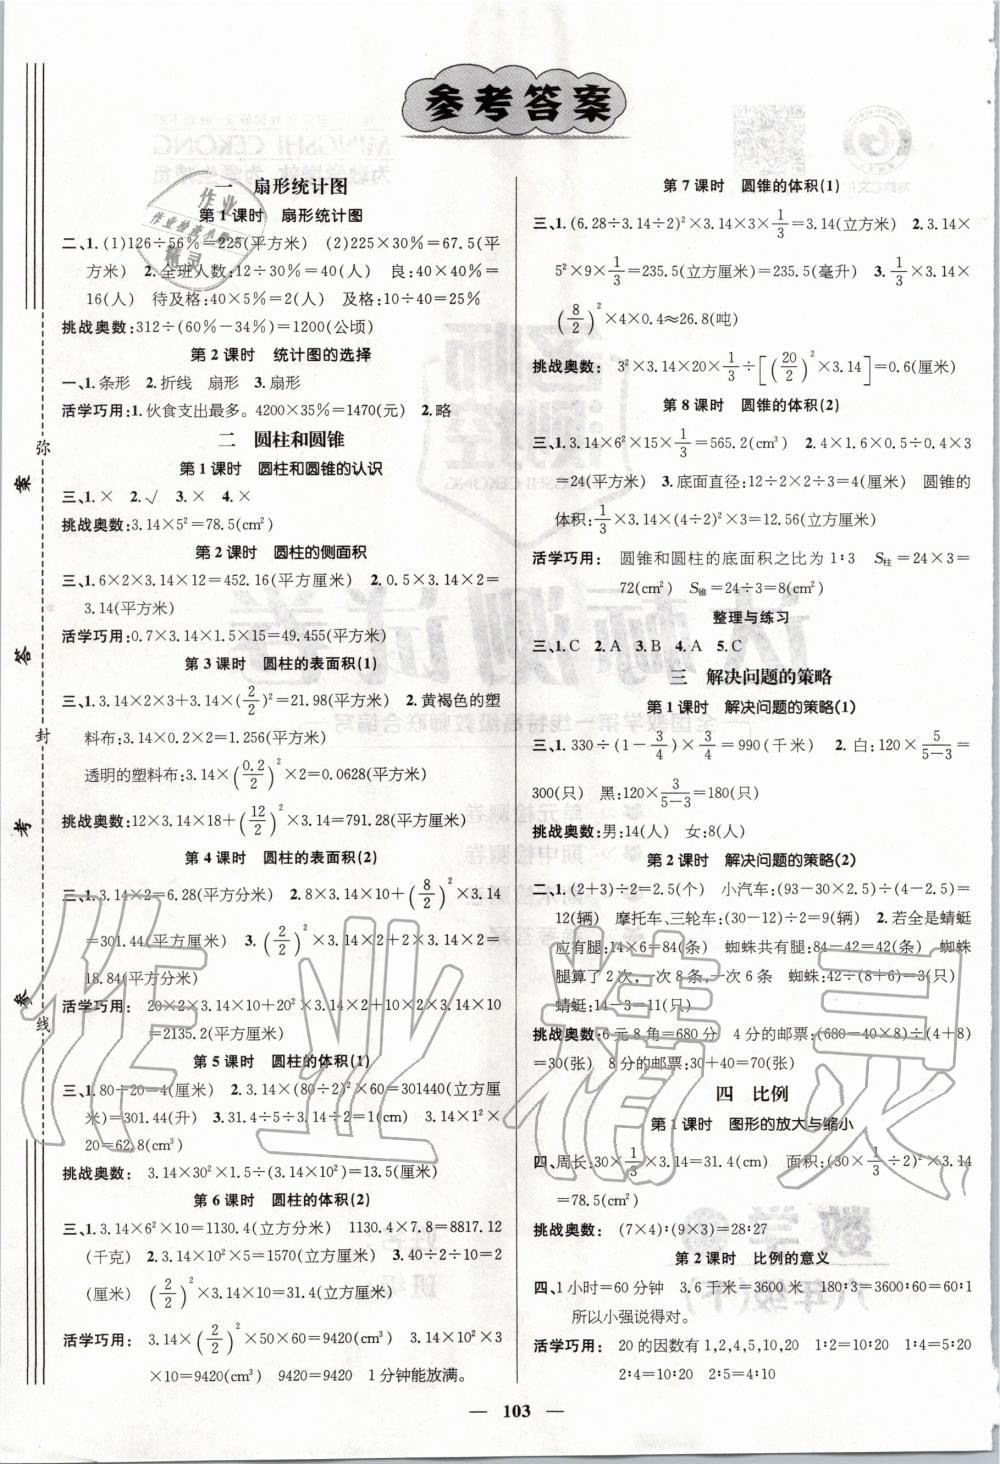 参考答案
一　扇形统计图
第1课时　扇形统计图
二、1.(1)126÷56%=225(平方米)　(2)225×30%=67.5(平
方米)　2.全班人数:12÷30%=40(人)　良:40×40%=
16(人)　待及格:40×5%=2(人)　及格:10÷40=25%
挑战奥数:312÷(60%-34%)=1200(公顷)
第2课时　统计图的选择
一、1.条形　2.折线　扇形　3.扇形
活学巧用:1.伙食支出最多。4200×35%=1470(元)　2.略
二　圆柱和圆锥
第1课时　圆柱和圆锥的认识
三、1.×　2.√　3.×　4.×
挑战奥数:3.14×5²=78.5(cm²)
第2课时　圆柱的侧面积
三、1.6×2×3.14×12=452.16(平方厘米)　2.0.5×3.14×2=
3.14(平方米)
活学巧用:0.7×3.14×1.5×15=49.455(平方米)
第3课时　圆柱的表面积(1)
三、1.3.14×2×3+3.14×(2/2)²=21.98(平方米)　2.黄褐色的塑
料布:3.14×0.2×2=1.256(平方米)
透明的塑料布:3.14×(0.2/2)²×2=0.0628(平方米)
挑战奥数:12×3.14×18+(12/2)²×3.14=791.28(平方厘米)
第4课时　圆柱的表面积(2)
三、1.3.14×2=6.28(平方分米)　2.8×3.14×10+(8/2)²×3.14
=301.44(平方厘米)　3.(2/2)²×3.14×2+2×3.14×2=
18.84(平方分米)
活学巧用:　20×2×3.14×10+20²×3.14×2+10×2×3.14×10
=2135.2(平方厘米)
第5课时　圆柱的体积(1)
三、1.80÷20=4(厘米)　2.3.14×(80÷2)²×60=301440(立方厘
米)=301.44(升)　3.31.4÷5÷3.14÷2=1(cm)　3.14×1²×
20=62.8(cm³)
挑战奥数:　3.14×30²×1.5÷(3.14×10²)=13.5(厘米)
第6课时　圆柱的体积(2)
三、1.3.14×6²×10=1130.4(立方分米)　1130.4×7.8=8817.12
(千克)　2.3.14×10²×5=1570(立方厘米)　3.40÷2÷10=2
(厘米)　(2/2)²×3.14×10=31.4(立方厘米)
活学巧用:　3.14×(2/2)²×50×60=9420(cm³)　3.14×10²×3
×10=9420(cm³)　9420=9420　1分钟能放满。
第7课时　圆锥的体积(1)
三、1.(6.28÷3.14÷2)²×3.14×3×1/3=3.14(立方米)　2.3.14×
5²×9×1/3=235.5(立方厘米)=235.5(毫升)　3.1/3×3.14×
(8/2)²×4×0.4≈26.8(吨)
挑战奥数:　3²×3.14×20×1/3÷[(20/2)²×3.14]=0.6(厘米)
第8课时　圆锥的体积(2)
三、1.3.14×6²×15×1/3=565.2(cm³)　2.4×1.6×0.5÷0.4×3
=24(平方米)　3.底面直径:12÷2×2÷3=4(厘米)　圆锥的
体积:1/3×3.14×(4÷2)²×3=12.56(立方厘米)
活学巧用:　圆锥和圆柱的底面积之比为1∶3　S柱=24×3=
72(cm²)　S锥=24÷3=8(cm²)
整理与练习
三、1.C　2.A　3.B　4.A　5.C
三　解决问题的策略
第1课时　解决问题的策略(1)
三、1.330÷(1-3/4)×3/4=990(千米)　2.白:120×5/(5-3)=
300(只)　黑:120×3/(5-3)=180(只)
挑战奥数:男:14(人)　女:8(人)
第2课时　解决问题的策略(2)
二、1.(2+3)÷2=2.5(个)　小汽车:(93-30×2.5)÷(4-2.5)=
12(辆)　摩托车、三轮车:(30-12)÷2=9(辆)　2.若全是蜻蜓
应有腿:14×6=84(条)　蜘蛛共有腿:84-42=42(条)　蜘蛛
腿算了2次,一次8条,一次6条　蜘蛛:42÷(8+6)=3(只)
蜻蜓:14-3=11(只)
挑战奥数:6元8角=680分　4分的邮票:(680-40×8)÷(4+8)
=30(张)　8分的邮票:30+40=70(张)
四　比例
第1课时　图形的放大与缩小
四、周长:30×1/3×3.14=31.4(cm)　面积:(30×1/3÷2)²×3.14
=78.5(cm²)
挑战奥数:　(7×4)∶(9×3)=28∶27
第2课时　比例的意义
四、1小时=60分钟　3.6千米=3600米　180∶3=3600∶60=60∶1
所以小强说得对。
活学巧用:　20的因数有1,2,4,5,10,20　1∶2=10∶20
2∶4=10∶20　2∶4=5∶10
弥
封
线
参
考
答
案
作业
作业检查小帮手
精灵
作业精灵
— 103 —